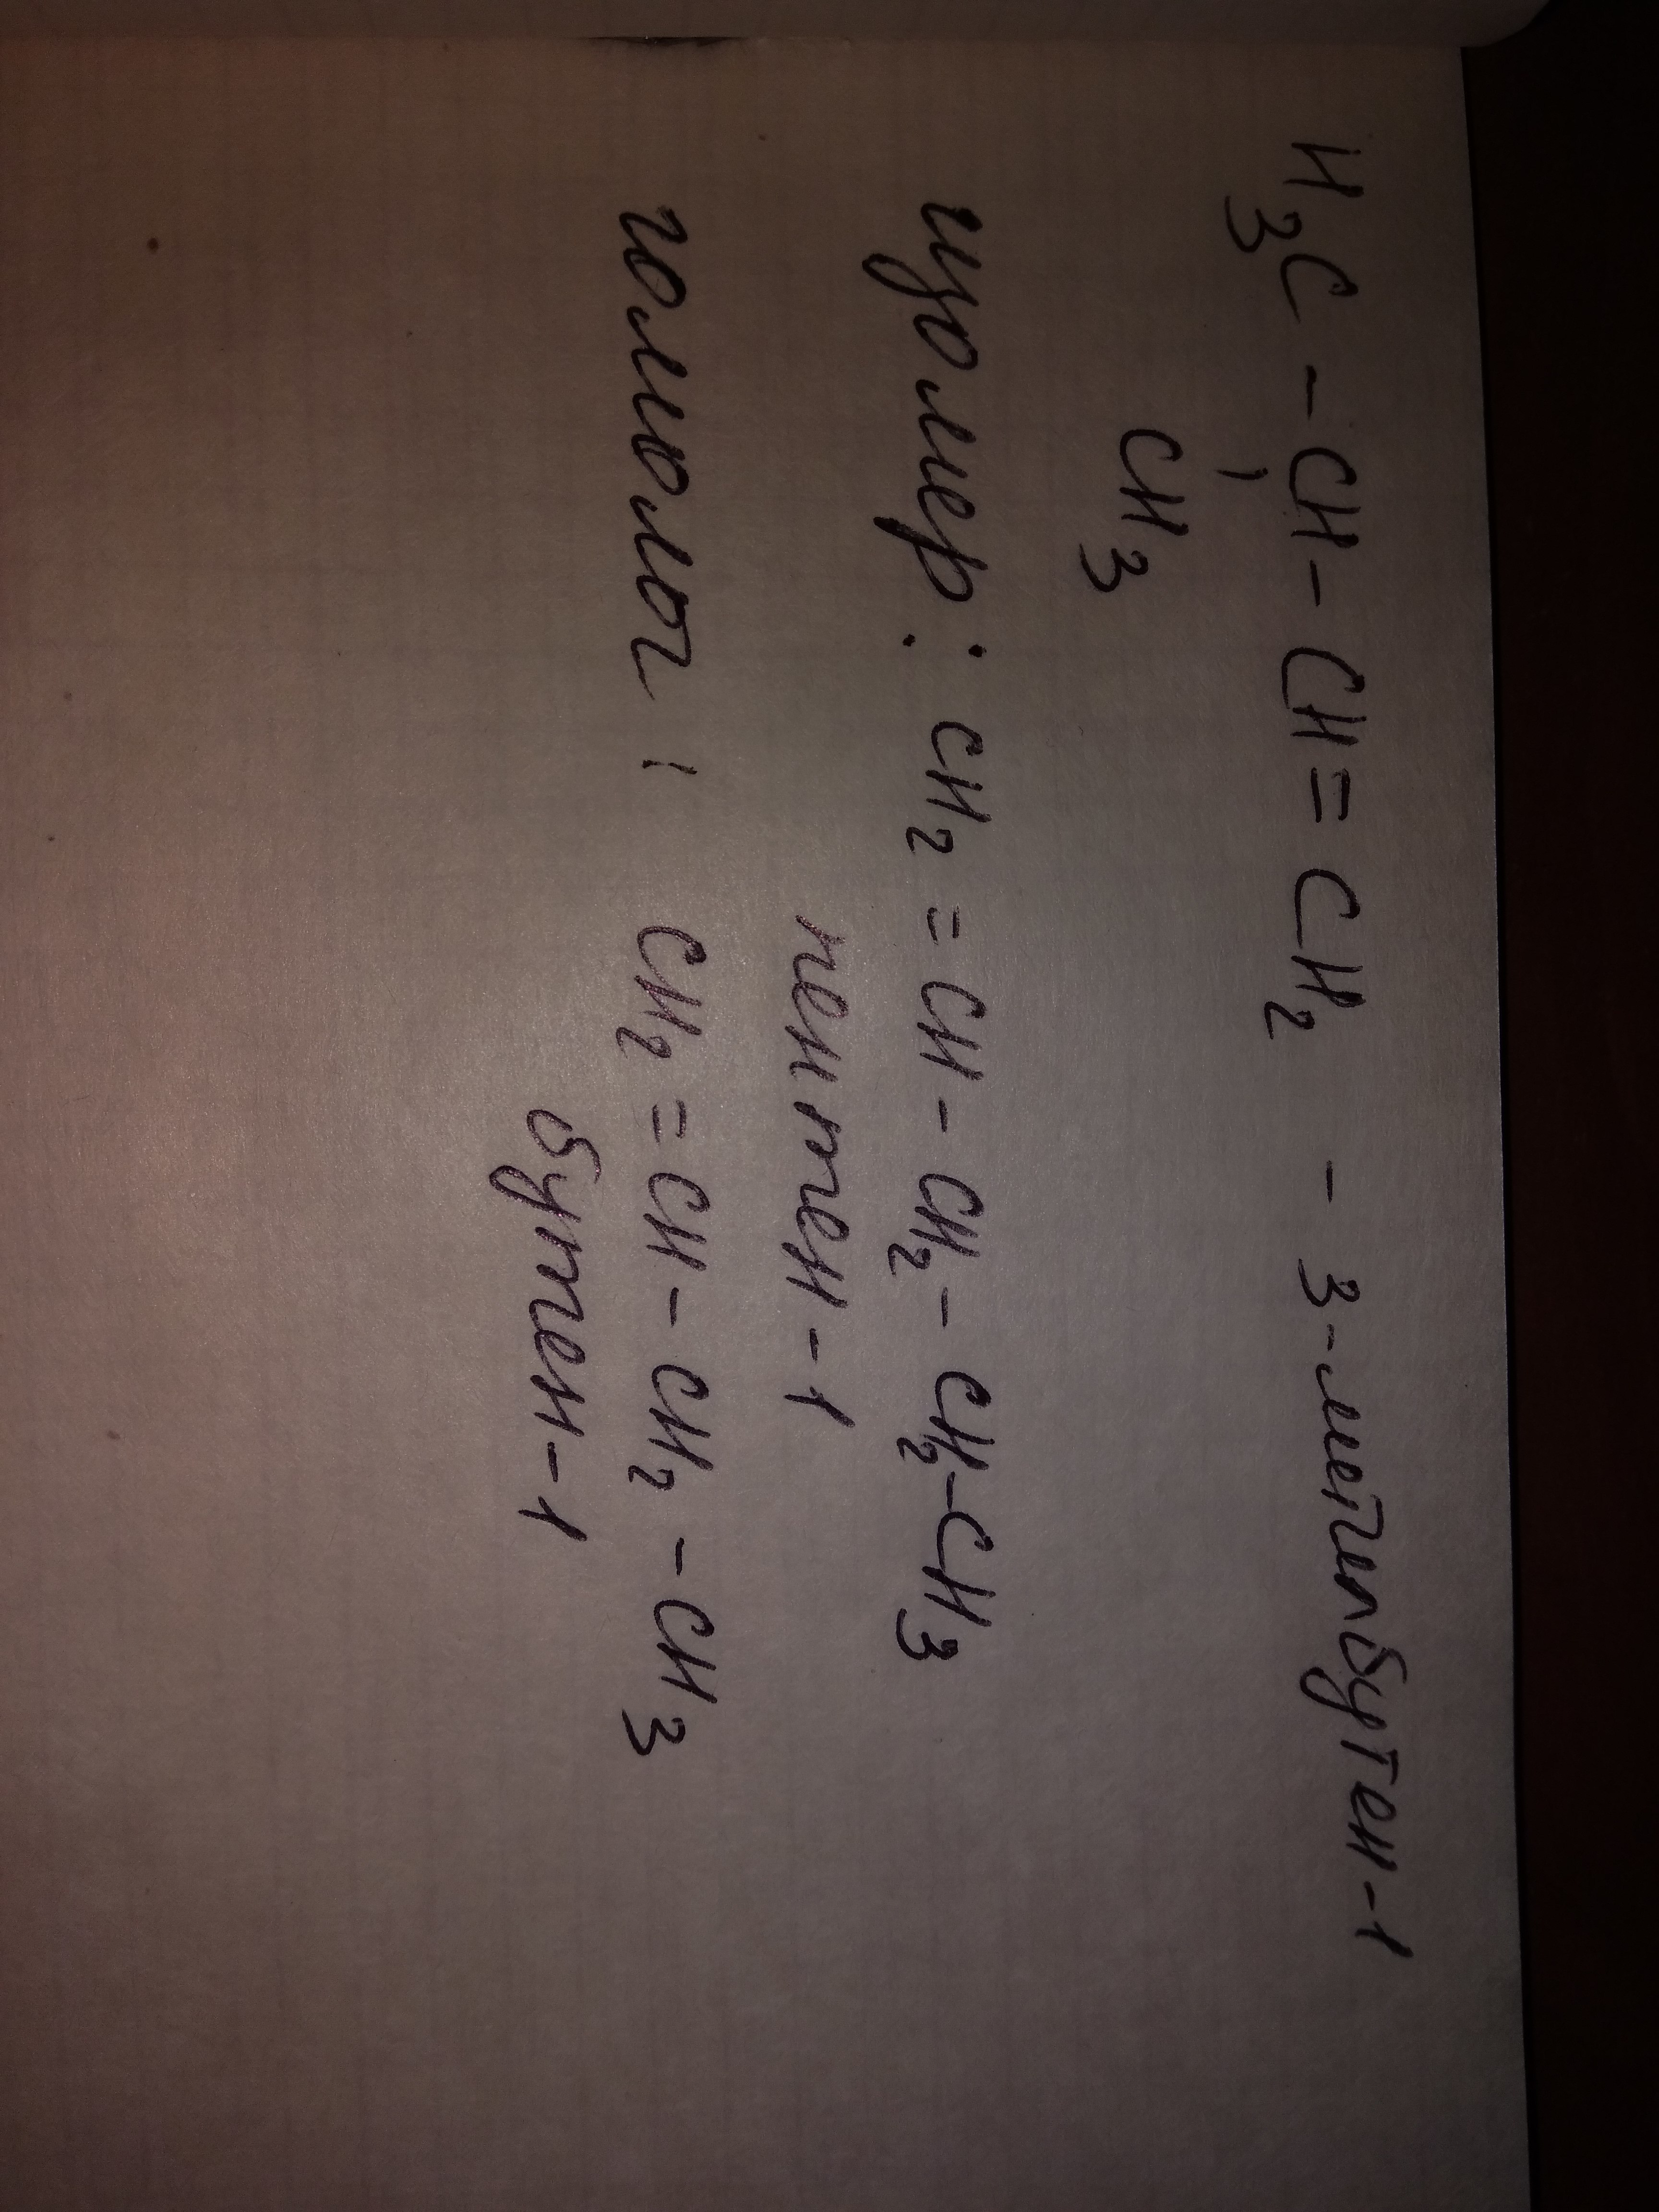 H₃C-CH-CH=CH₂ - 3-метилбутен-1
CH₃
изомер: CH₂=CH-CH₂-CH₂-CH₃
пентен-1
гомолог: CH₂=CH-CH₂-CH₃
бутен-1